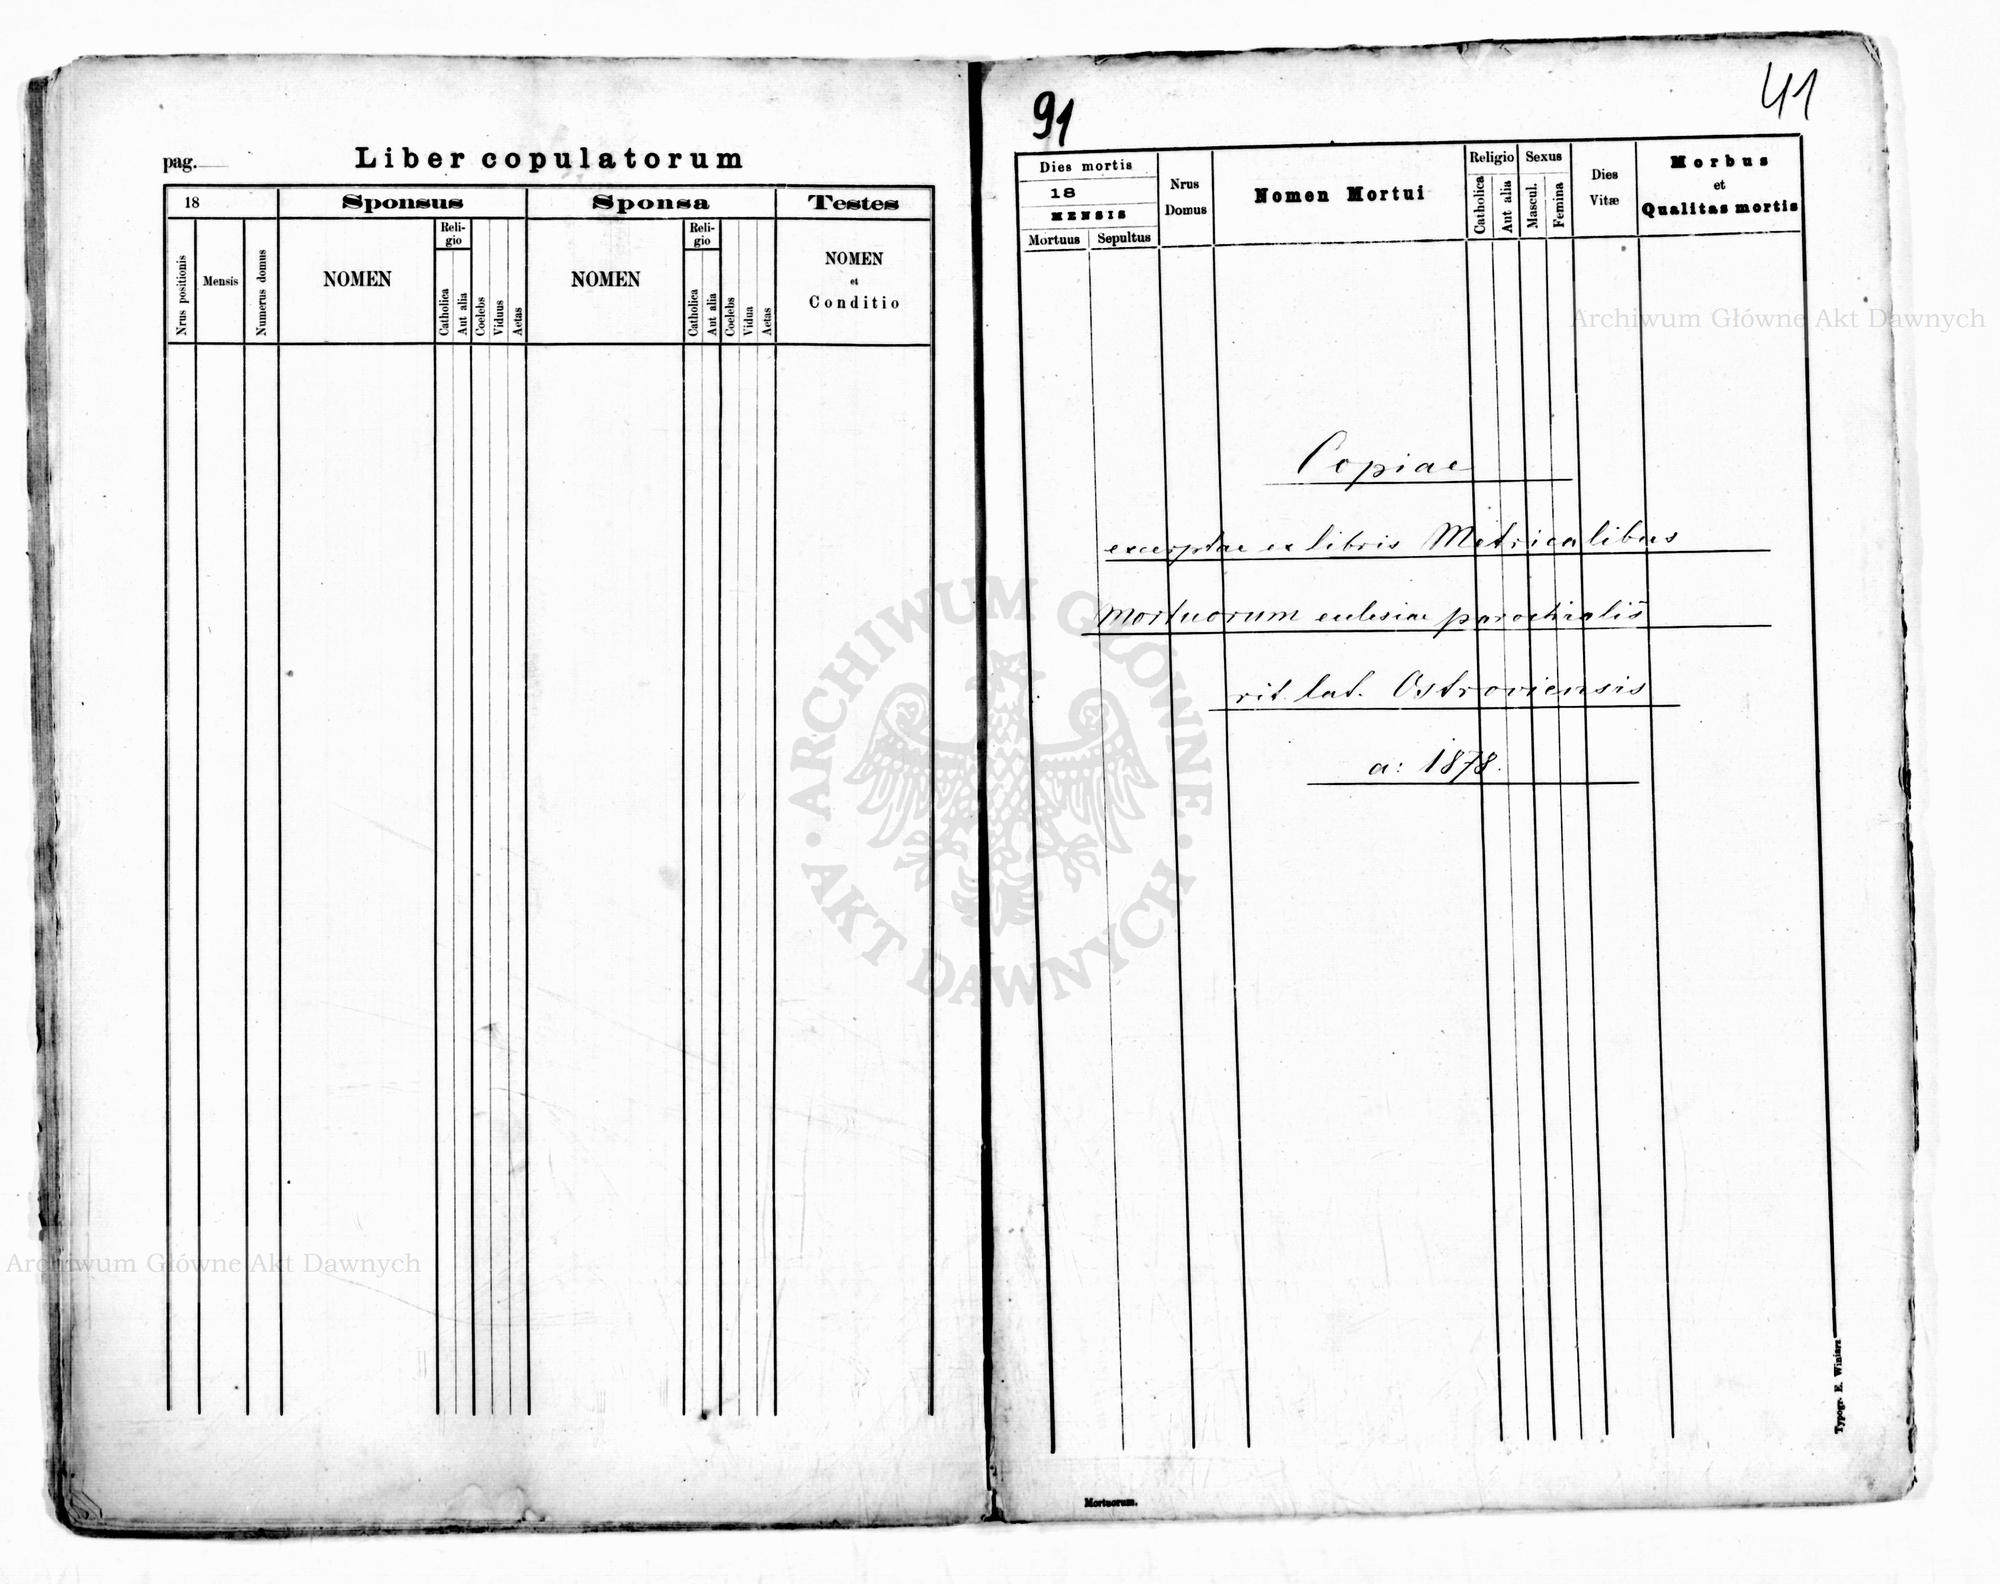 pag.
Liber copulatorum
18
Sponsus
Sponsa
Testes
Nrus positionis
Mensis
Numerus domus
NOMEN
Reli-
gio
Catholica
Aut alia
Coelebs
Viduus
Aetas
NOMEN
Reli-
gio
Catholica
Aut alia
Coelebs
Vidua
Aetas
NOMEN
et
Conditio
91
41
Dies mortis
18
MENSIS
Mortuus
Sepultus
Nrus
Domus
Nomen Mortui
Religio
Catholica
Aut alia
Sexus
Mascul.
Femina
Dies
Vitæ
Morbus
et
Qualitas mortis
Copiae
excerptae ex libris Metricalibus
Mortuorum eclesiae parochialis
rit. lat. Ostroviensis
a: 1878.
Typogr. E. Winiarz
Mortuorum.
Archiwum Główne Akt Dawnych
ARCHIWUM GŁÓWNE · AKT DAWNYCH ·
Archiwum Główne Akt Dawnych